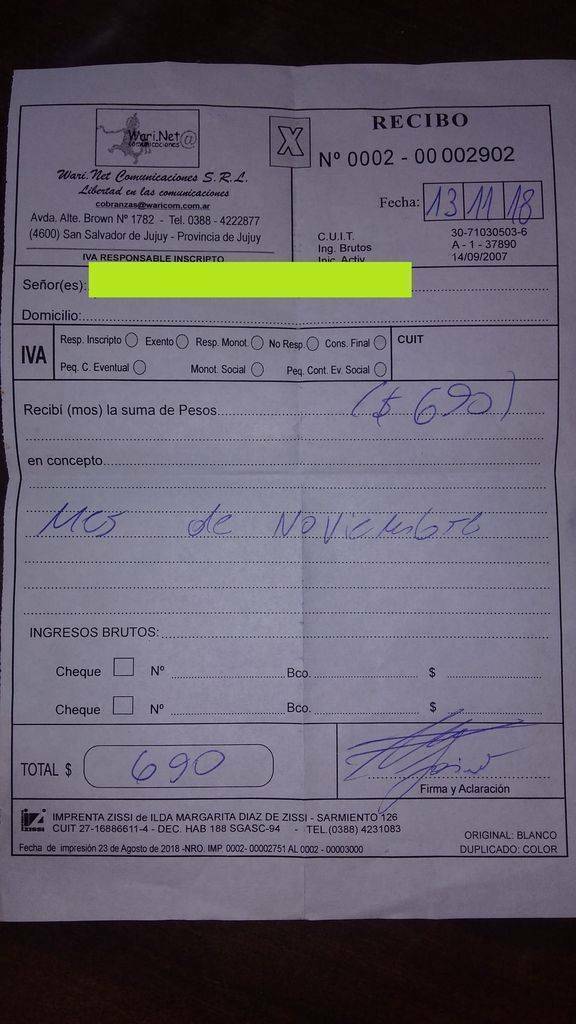 Wari.Net@
comunicaciones
Wari.Net Comunicaciones S.R.L.
Libertad en las comunicaciones
cobranzas@waricom.com.ar
Avda. Alte. Brown Nº 1782 - Tel. 0388 - 4222877
(4600) San Salvador de Jujuy - Provincia de Jujuy
IVA RESPONSABLE INSCRIPTO
X
RECIBO
Nº 0002 - 00 002902
Fecha: 13 11 18
C.U.I.T. 30-71030503-6
Ing. Brutos A - 1 - 37890
Inic. Activ. 14/09/2007
Señor(es):
Domicilio:
IVA
Resp. Inscripto Exento Resp. Monot. No Resp. Cons. Final
Peq. C. Eventual Monot. Social Peq. Cont. Ev. Social
CUIT
Recibí (mos) la suma de Pesos ($ 690)
en concepto
Mes de Noviembre
INGRESOS BRUTOS:
Cheque Nº Bco. $
Cheque Nº Bco. $
TOTAL $ 690
Firma y Aclaración
ZISSI
IMPRENTA ZISSI de ILDA MARGARITA DIAZ DE ZISSI - SARMIENTO 126
CUIT 27-16886611-4 - DEC. HAB 188 SGASC-94 - TEL.(0388) 4231083
Fecha de impresión 23 de Agosto de 2018 -NRO: IMP 0002- 00002751 AL 0002 - 00003000
ORIGINAL: BLANCO
DUPLICADO: COLOR